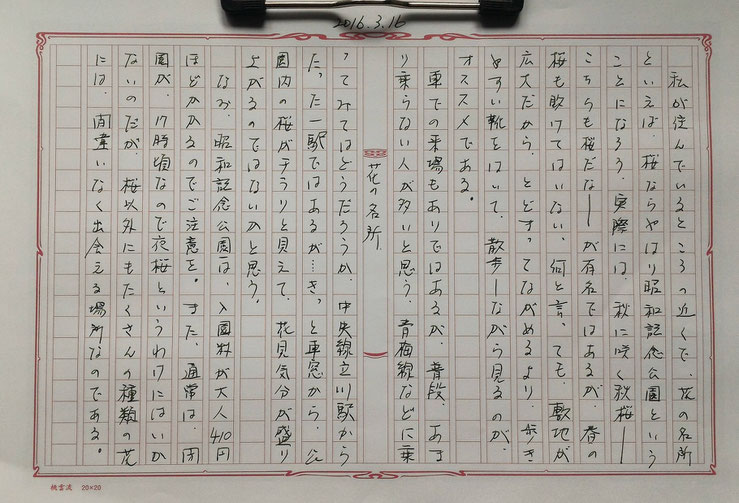 2016.3.16
私が住んでいるところの近くで、花の名所
といえば、桜ならやはり昭和記念公園という
ことになろう。実際には、秋に咲く秋桜——
こちらも桜だな——が有名ではあるが、春の
桜も敗けてはいない。何と言っても、敷地が
広大だから、とどまってながめるより、歩き
やすい靴をはいて、散歩しながら見るのが、
オススメである。
車での来場もありではあるが、普段、あま
り乗らない人が多いと思う。青梅線などに乗
花の名所
ってみてはどうだろうか。中央線立川駅から
たった一駅ではあるが…きっと車窓から、公
園内の桜がチラリと見えて、花見気分が盛り
上がるのではないかと思う。
なお、昭和記念公園は、入園料が大人410円
ほどかかるのでご注意を。また、通常は、閉
園が、17時頃なので夜桜というわけにはいか
ないのだが、桜以外にもたくさんの種類の花
には、間違いなく出会える場所なのである。
桃雲流 20×20